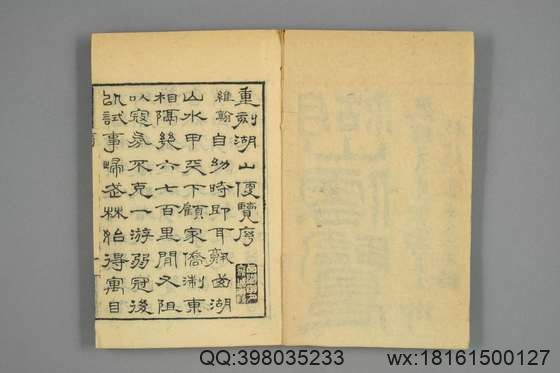 重刻湖山便覽序
維翰自幼時即耳熟西湖
山水甲天下顧家僑淛東
相隔幾六七百里間又阻
以寇氛不克一游弱冠後
以試事歸武林始得寓目
QQ:398035233 wx:18161500127